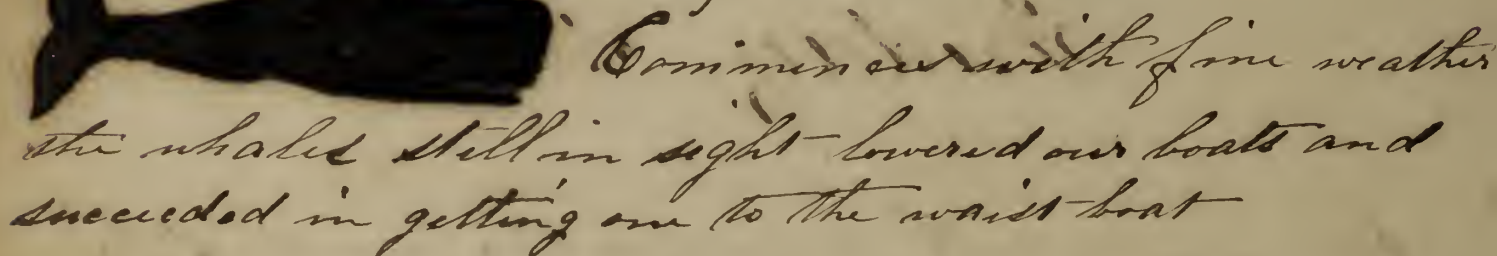 Commences with fine weather
the whales still in sight lowered our boats and
succeeded in getting one to the waist boat